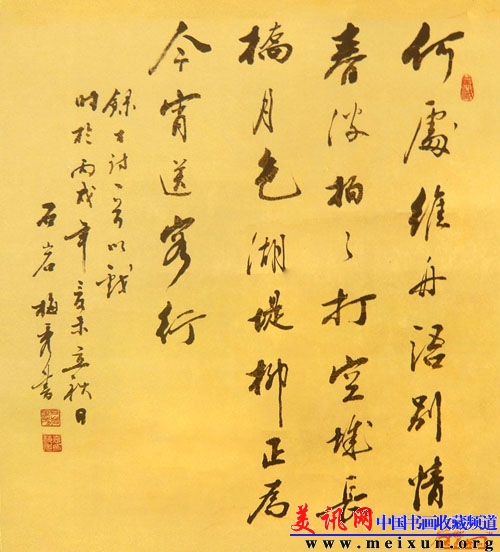 何處維舟語別情
春波拍々打空城長
橋月色湖堤柳正為
今宵送客行
錄古詩一首以
時於丙戌年立秋日
石岩梅秀書
美讯网
中国书画收藏频道
www.meixun.org